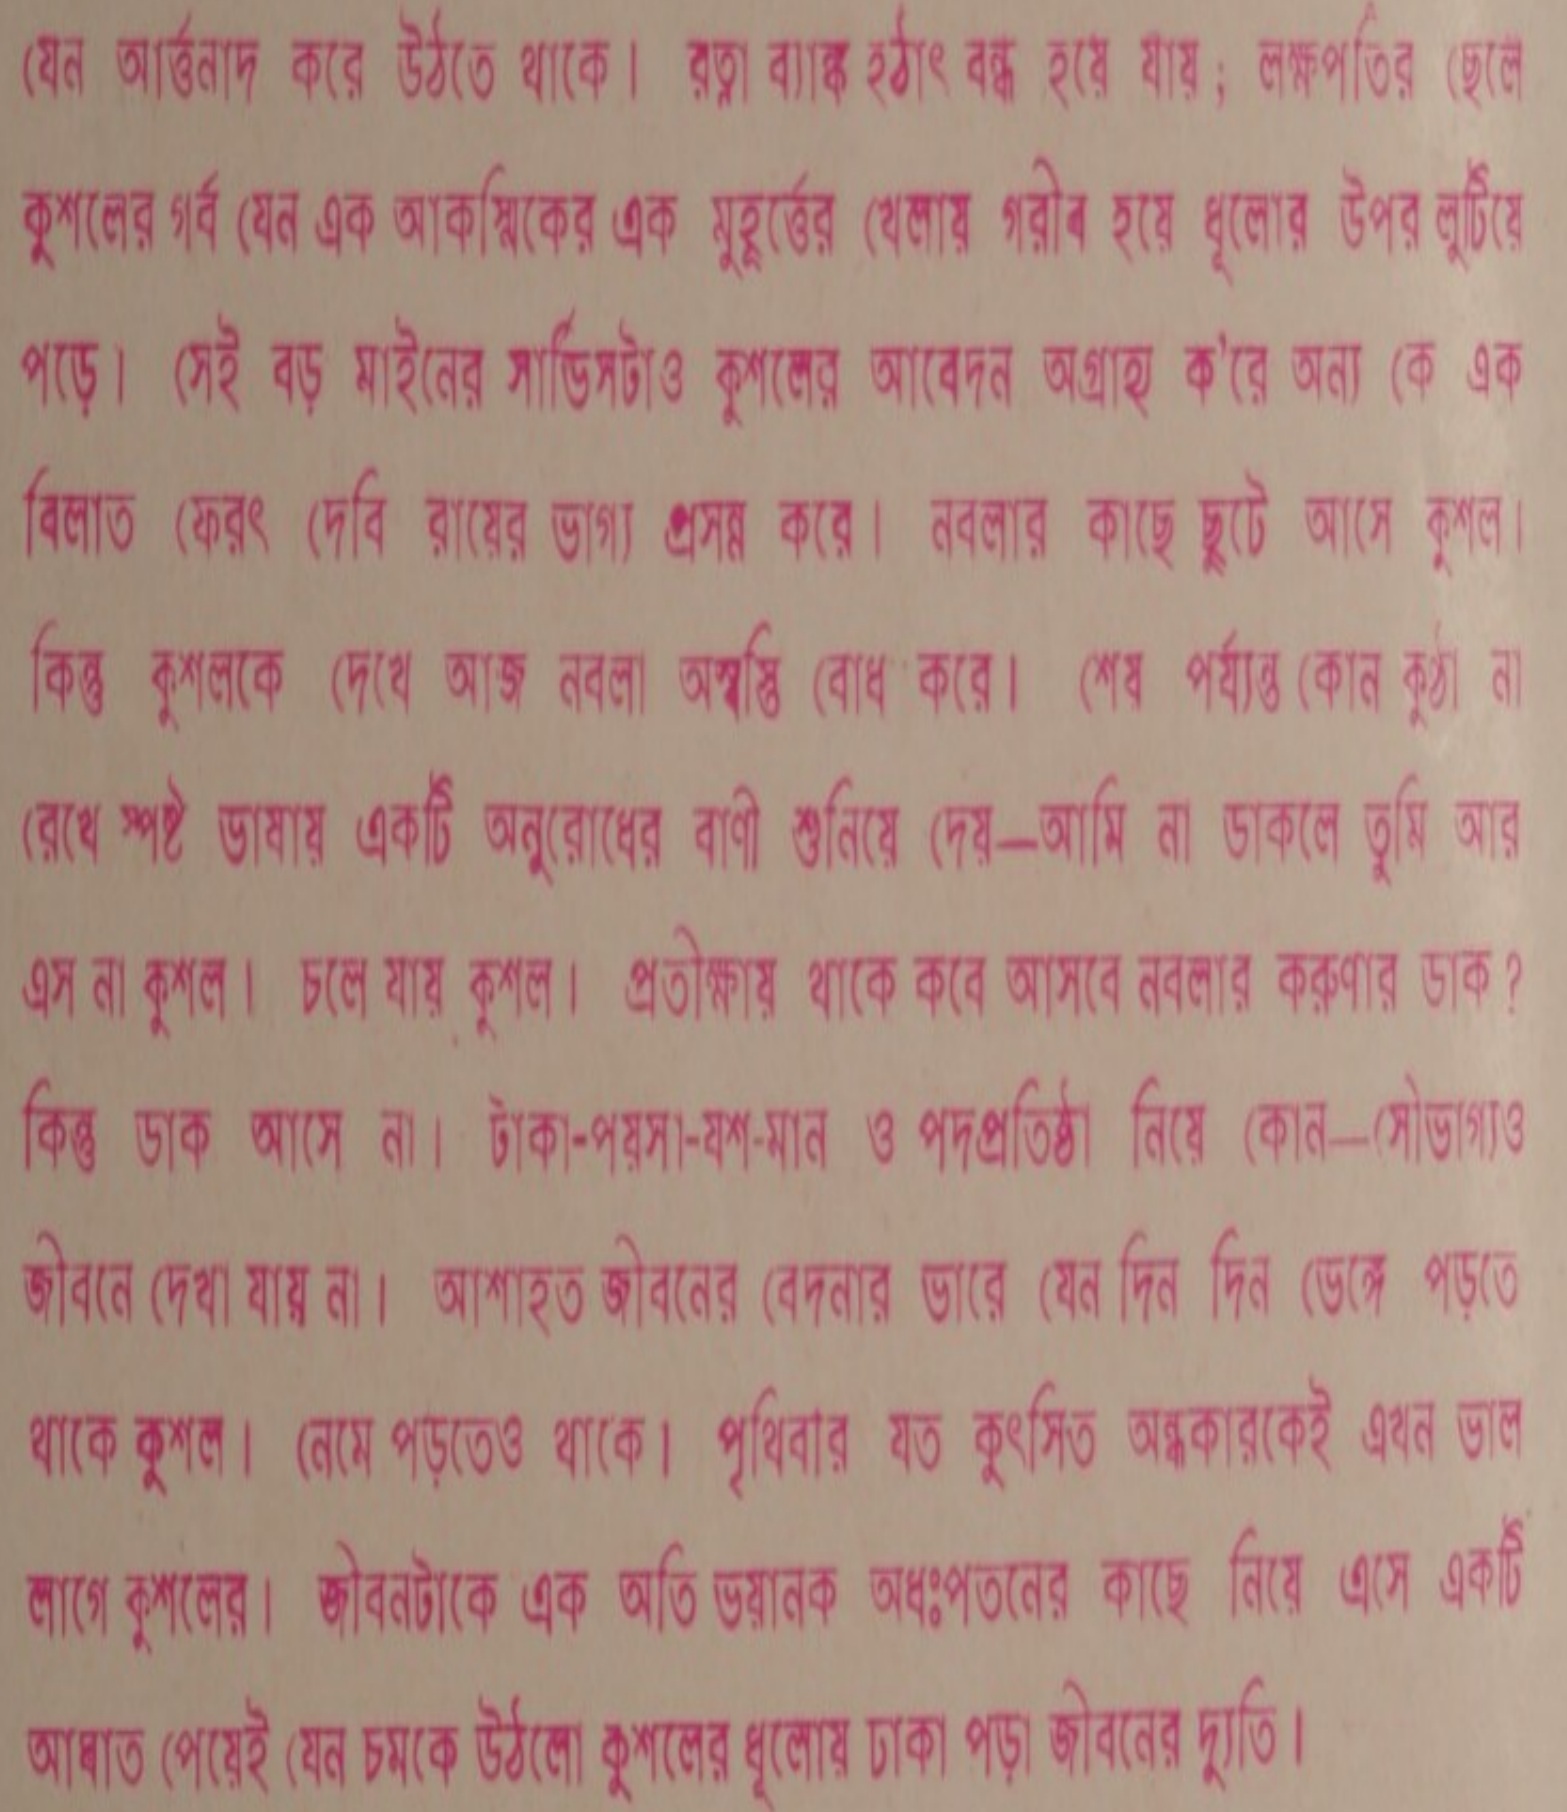 যেন আর্ত্তনাদ করে উঠতে থাকে। রত্না ব্যাঙ্ক হঠাৎ বন্ধ হয়ে যায়; লক্ষপতির ছেলে
কুশলের গর্ব যেন এক আকস্মিকের এক মুহূর্ত্তের খেলায় গরীব হয়ে ধূলোর উপর লুটিয়ে
পড়ে। সেই বড় মাইনের সার্ভিসটাও কুশলের আবেদন অগ্রাহ্য ক'রে অন্য কে এক
বিলাত ফেরৎ দেবি রায়ের ভাগ্য প্রসন্ন করে। নবলার কাছে ছুটে আসে কুশল।
কিন্তু কুশলকে দেখে আজ নবলা অস্বস্তি বোধ করে। শেষ পর্য্যন্ত কোন কুণ্ঠা না
রেখে স্পষ্ট ভাষায় একটি অনুরোধের বাণী শুনিয়ে দেয়—আমি না ডাকলে তুমি আর
এস না কুশল। চলে যায় কুশল। প্রতীক্ষায় থাকে কবে আসবে নবলার করুণার ডাক?
কিন্তু ডাক আসে না। টাকা-পয়সা-যশ-মান ও পদপ্রতিষ্ঠা নিয়ে কোন—সৌভাগ্যও
জীবনে দেখা যায় না। আশাহত জীবনের বেদনার ভারে যেন দিন দিন ভেঙ্গে পড়তে
থাকে কুশল। নেমে পড়তেও থাকে। পৃথিবীর যত কুৎসিত অন্ধকারকেই এখন ভাল
লাগে কুশলের। জীবনটাকে এক অতি ভয়ানক অধঃপতনের কাছে নিয়ে এসে একটি
আঘাত পেয়েই যেন চমকে উঠলো কুশলের ধূলোয় ঢাকা পড়া জীবনের দ্যুতি।